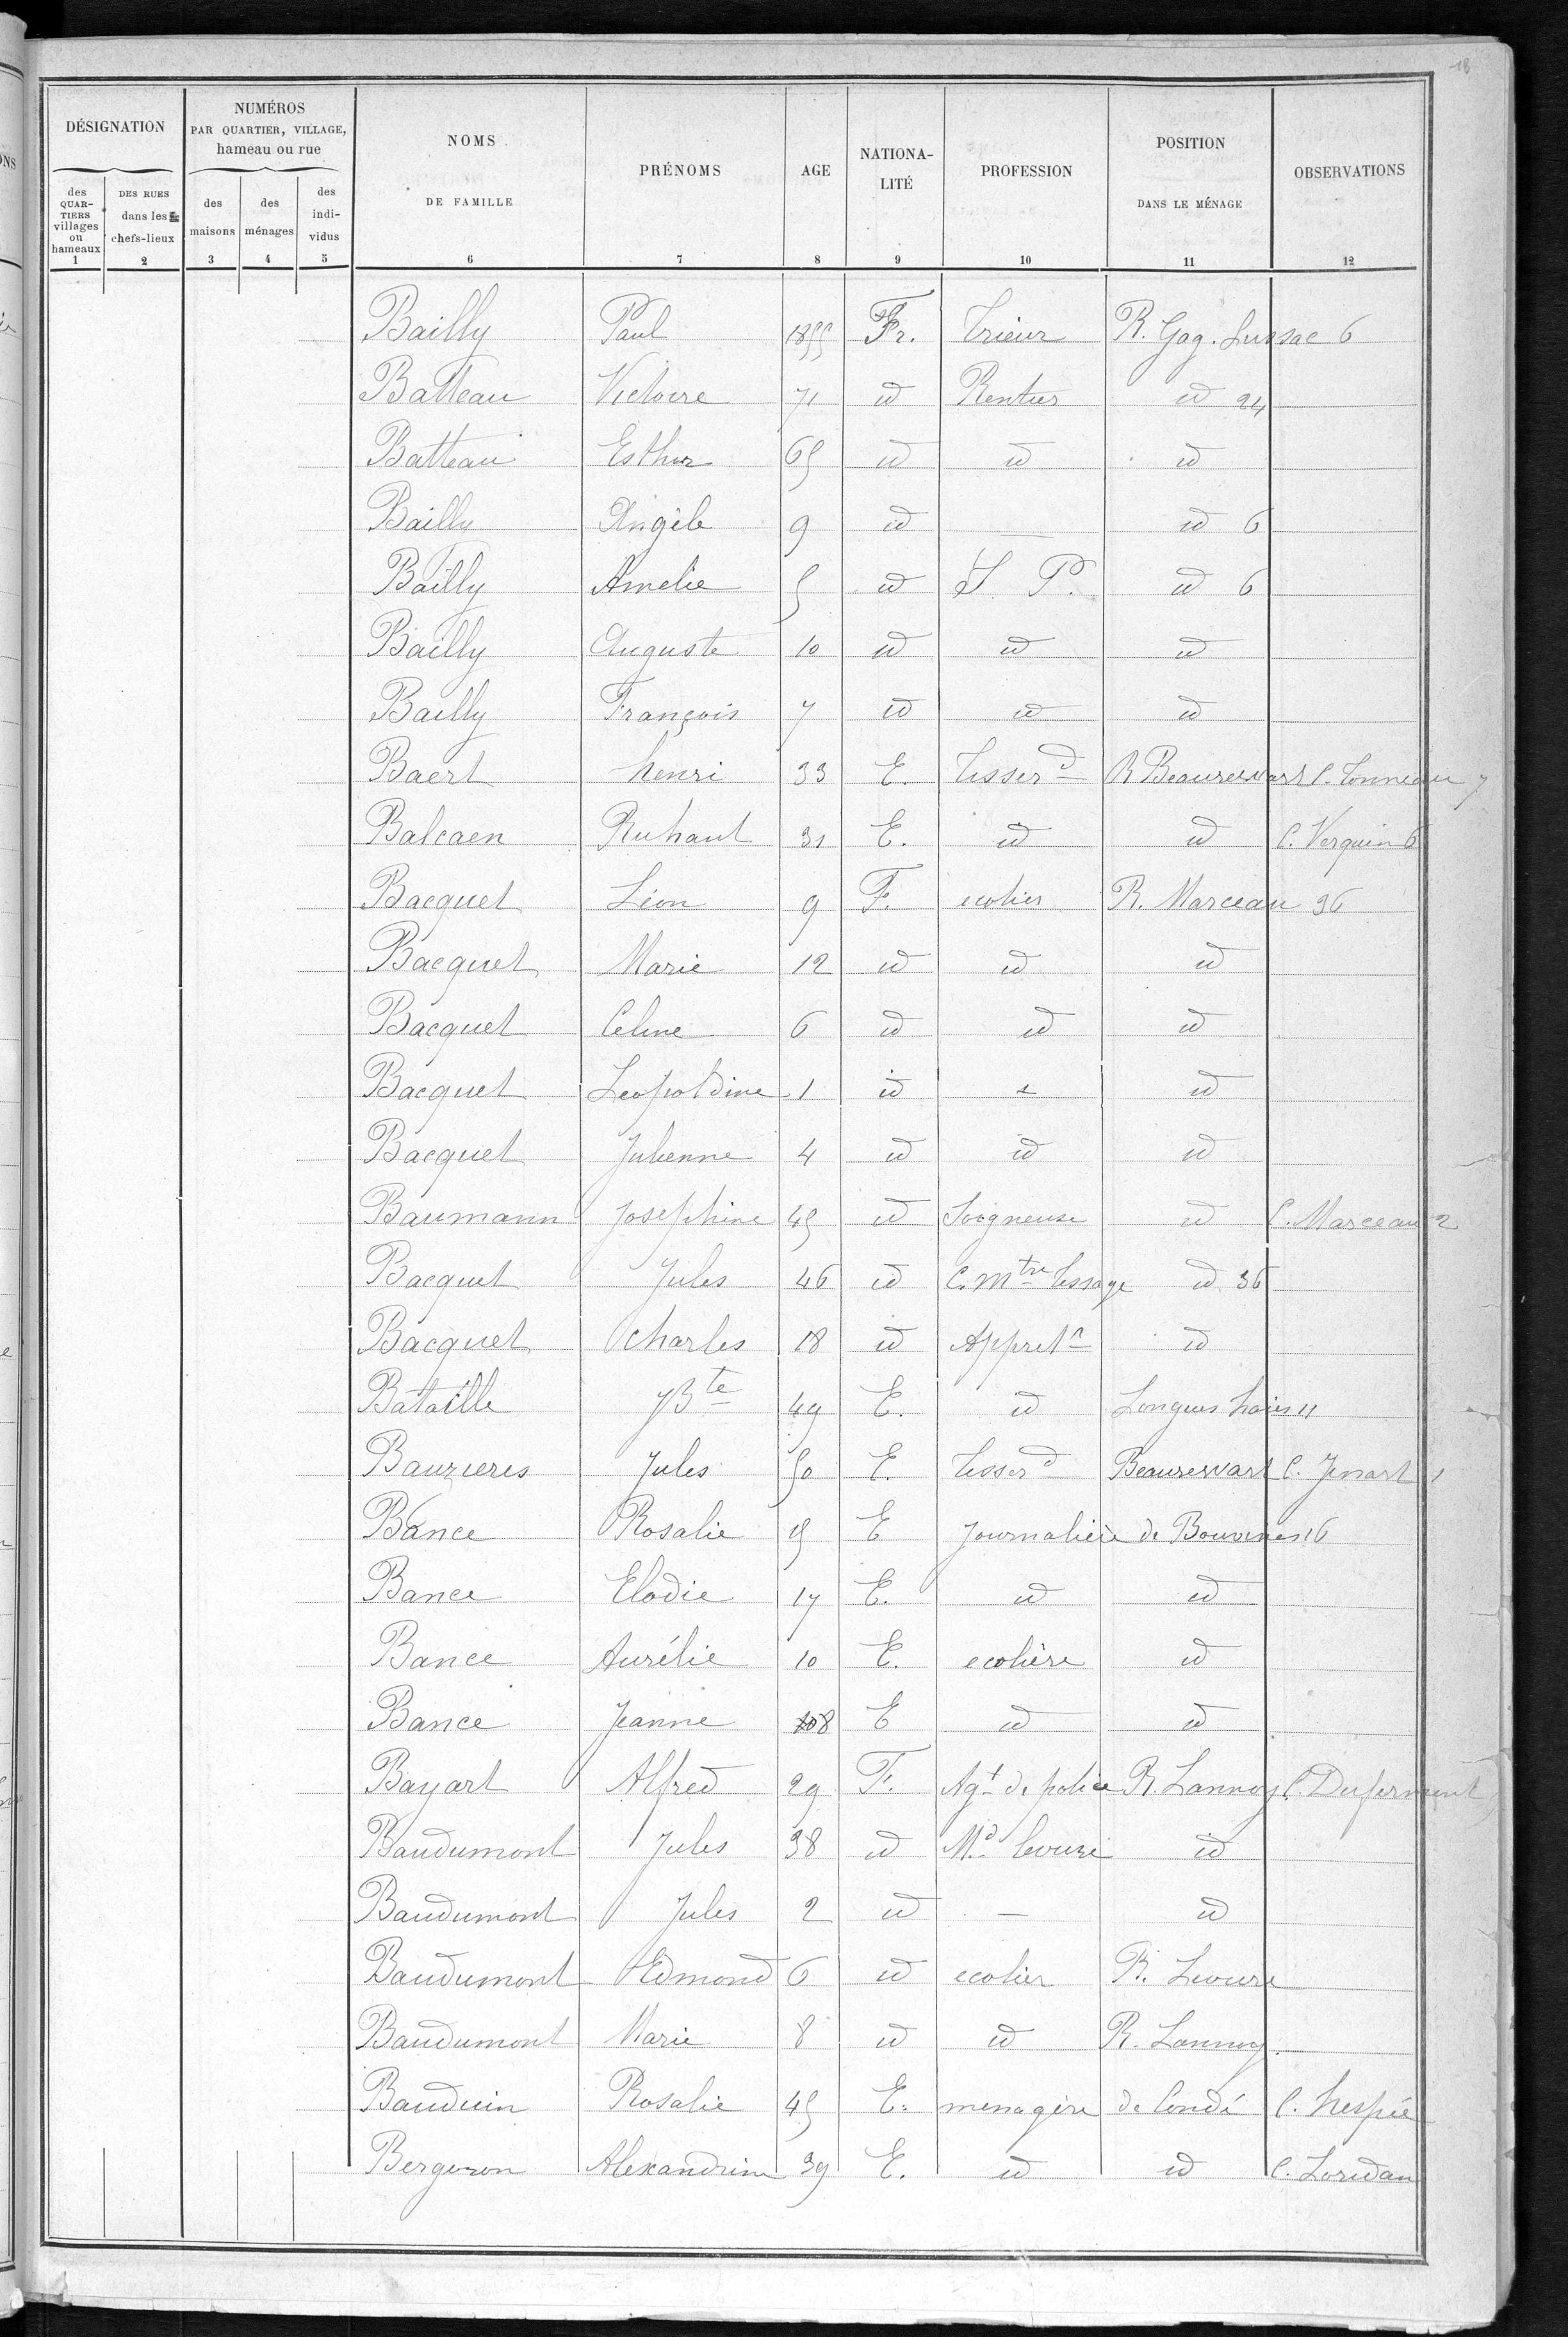 18
DÉSIGNATION
NUMÉROS PAR QUARTIER, VILLAGE, hameau ou rue
NOMS DE FAMILLE
PRÉNOMS
AGE
NATIONA-LITÉ
PROFESSION
POSITION DANS LE MÉNAGE
OBSERVATIONS
des QUAR-TIERS villages ou hameaux
DES RUES dans les chefs-lieux
des maisons
des ménages
des indi-vidus
1 2 3 4 5 6 7 8 9 10 11 12
Bailly Paul 1855 Fr. Trieur R. Gag. Lussac 6
Batteau Victoire 71 id Rentier id 24
Batteau Esther 65 id id id
Bailly Angèle 9 id — id 6
Bailly Amelie 5 id S. P. id 6
Bailly Auguste 10 id id id
Bailly François 7 id id id
Baert henri 33 E. Tisserd R Beaurewart C. Tonneau 7
Balcaen Ruhaut 31 E. id id C. Verquin 6
Bacquet Léon 9 F. ecolier R. Marceau 36
Bacquet Marie 12 id id id
Bacquet Celine 6 id id id
Bacquet Leopoldine 1 id id
Bacquet Julienne 4 id id id
Baumann Josephine 45 id Soigneuse id C. Marceau 2
Bacquet Jules 46 id C. mtre tissage id 36
Bacquet Charles 18 id Appretr id
Bataille JBte 49 E. id Longues haies 11
Bauzieres Jules 50 E. Tisserd Beaurewart C. Jenart 1
Bance Rosalie 15 E journalière de Bouvines 16
Bance Elodie 17 E. id id
Bance Aurélie 10 E. ecolière id
Bance Jeanne 8 E id id
Bayart Alfred 29 F. Agt de police R. Lannoy C. Duferment
Baudumont Jules 38 id Md levure id
Baudumont Jules 2 id — id
Baudumont Edmond 6 id ecolier R. Levure
Baudumont Marie 8 id id R. Lannoy.
Bauduin Rosalie 45 E. menagère de Condé C. Kespié
Bergeron Alexandrine 39 E. id id C. Loridan